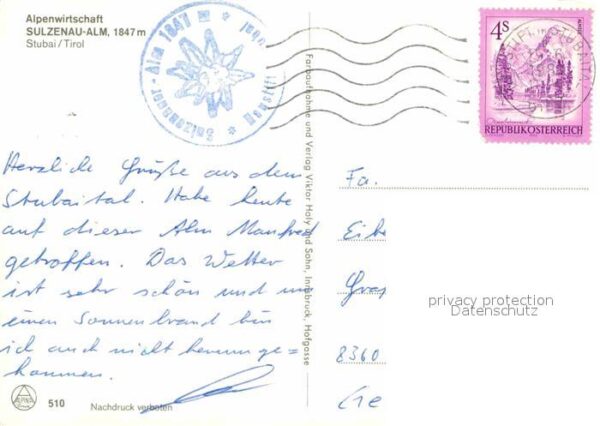 Alpenwirtschaft
SULZENAU-ALM, 1847 m
Stubai/Tirol
Sulzenauer-Alm 1847 m
4 S
REPUBLIK ÖSTERREICH
Herzliche Grüße aus dem
Stubaital. Habe heute
auf dieser Alm Manfred
getroffen. Das Wetter
ist sehr schön und um
einen Sonnenbrand bin
ich auch nicht herumge=
kommen.
Farbaufnahme und Verlag Viktor Holy und Sohn, Innsbruck, Hofgasse
Fa.
Eibe
Gras
privacy protection
Datenschutz
8360
510
Nachdruck verboten